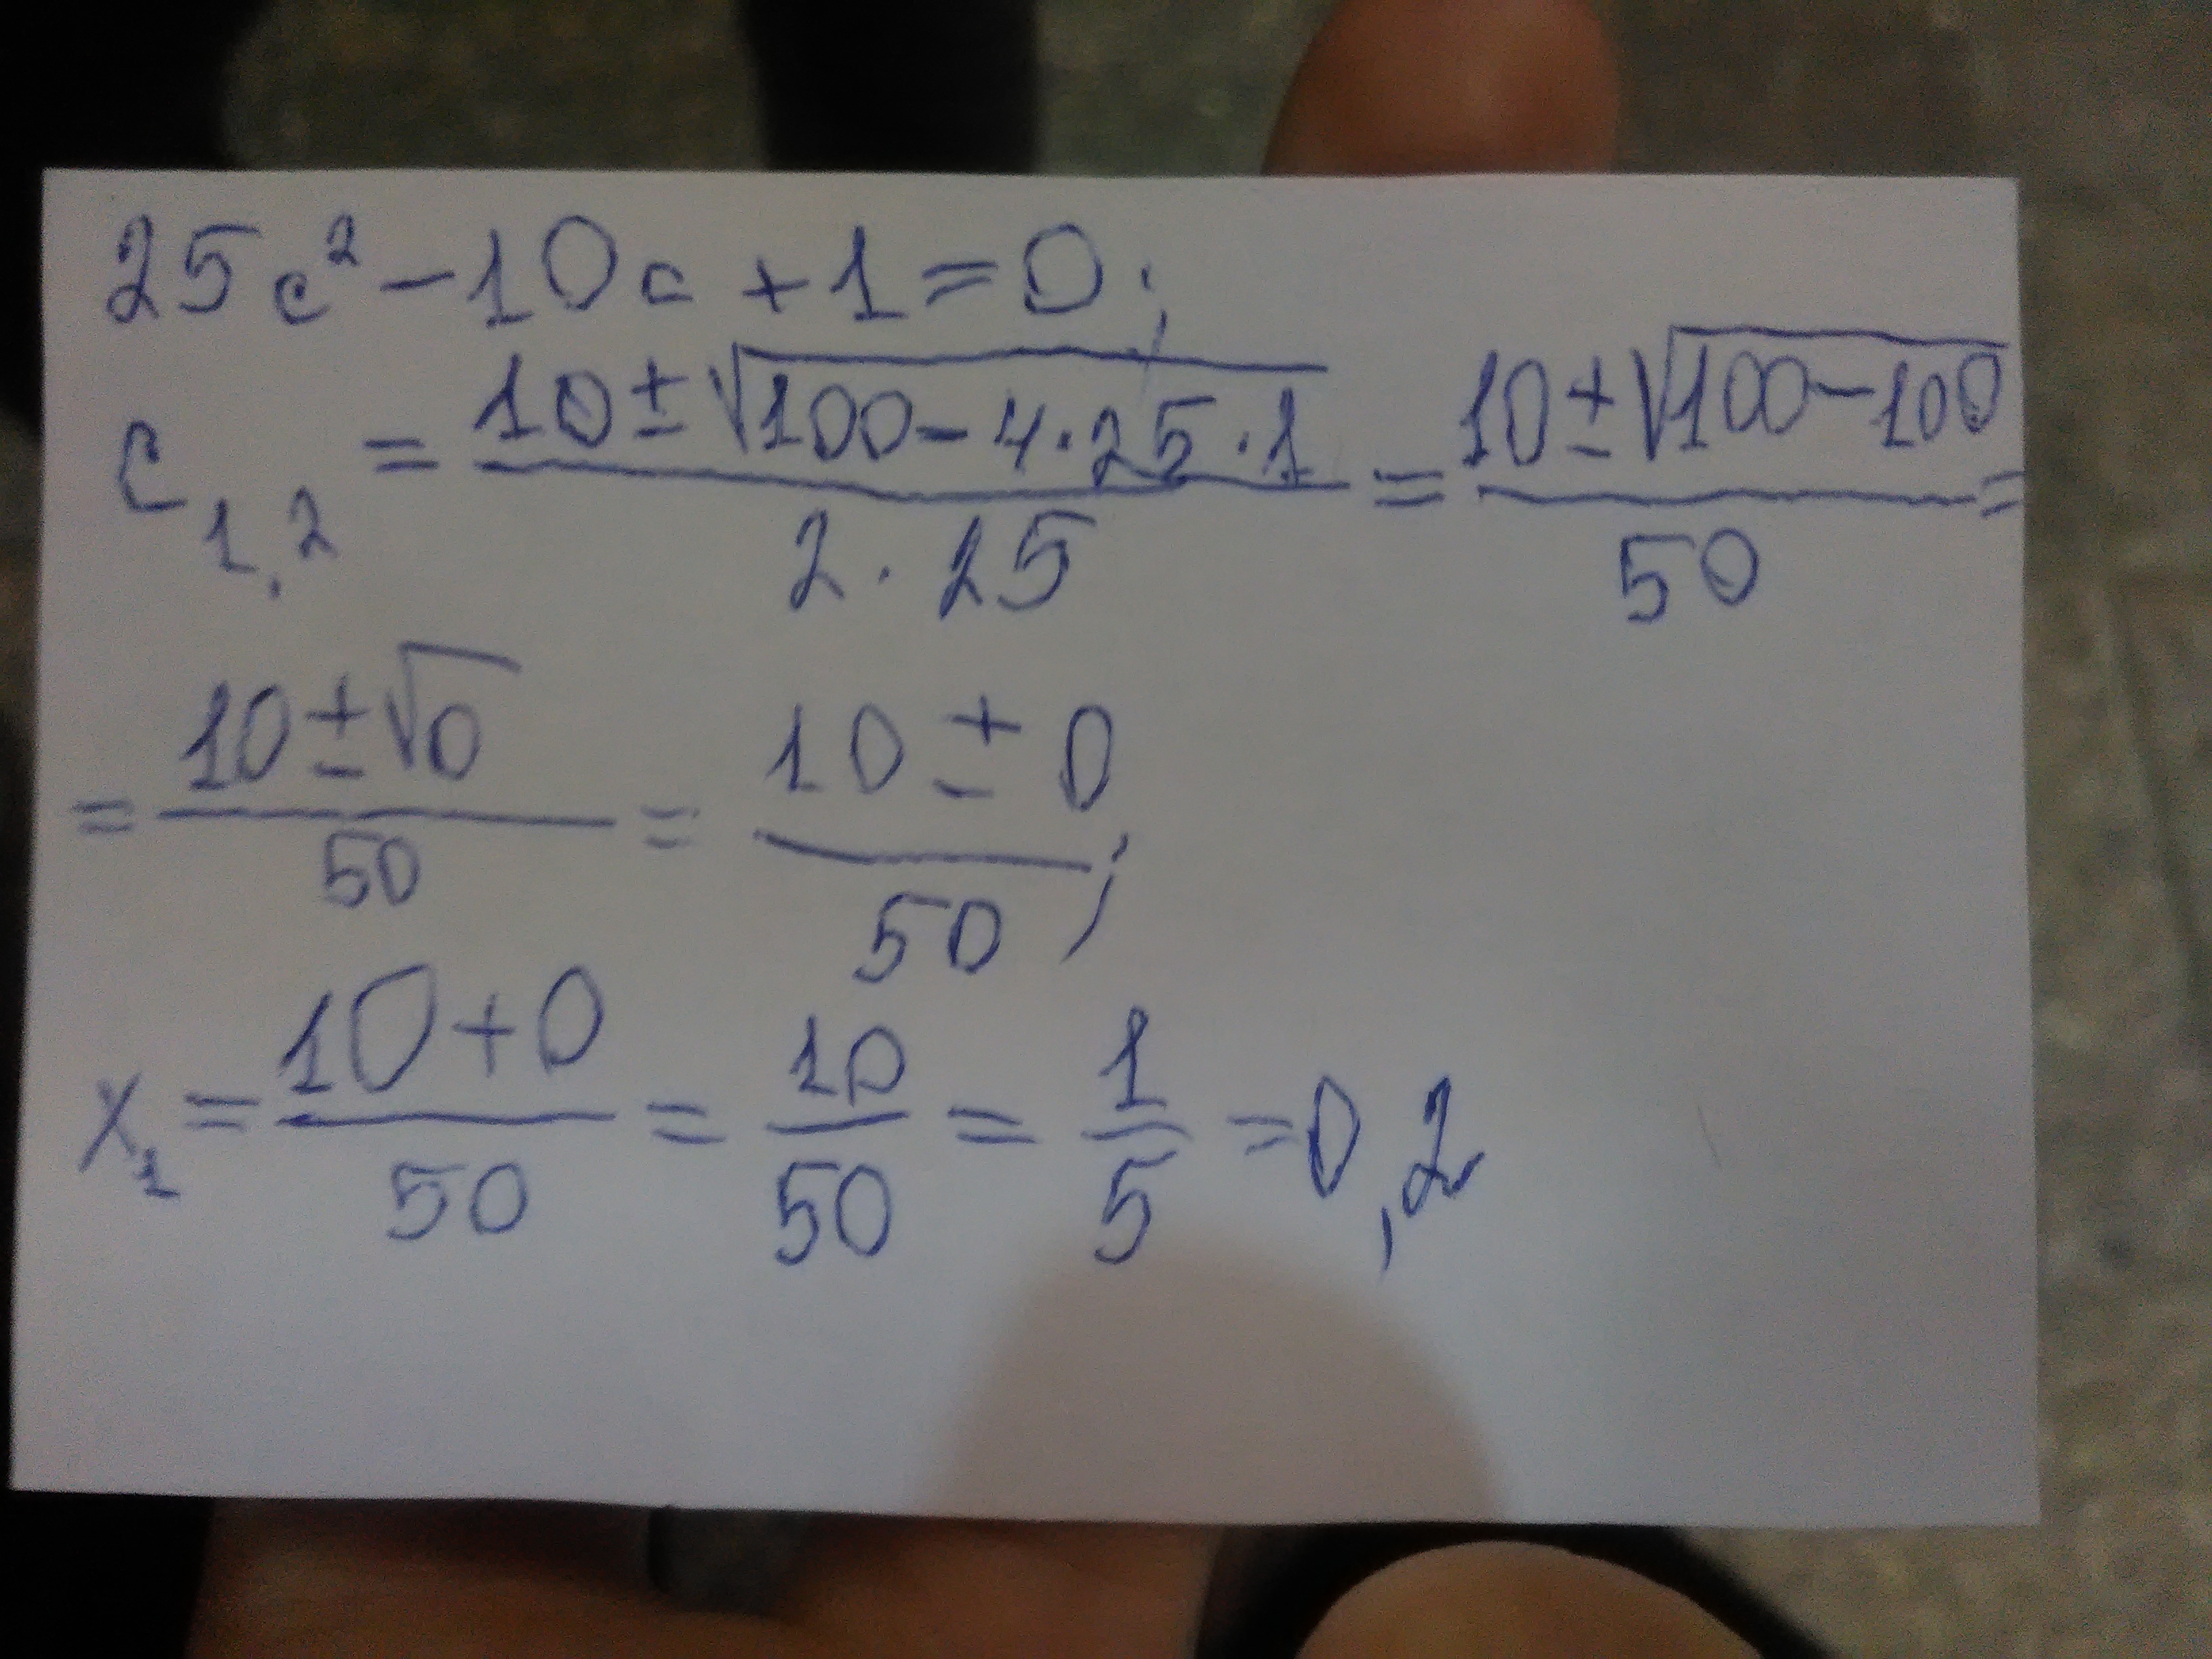 25c² - 10c + 1 = 0;
c₁,₂ = (10 ± √(100 - 4·25·1))/(2·25) = (10 ± √(100 - 100))/50 =
= (10 ± √0)/50 = (10 ± 0)/50;
x₁ = (10 + 0)/50 = 10/50 = 1/5 = 0,2